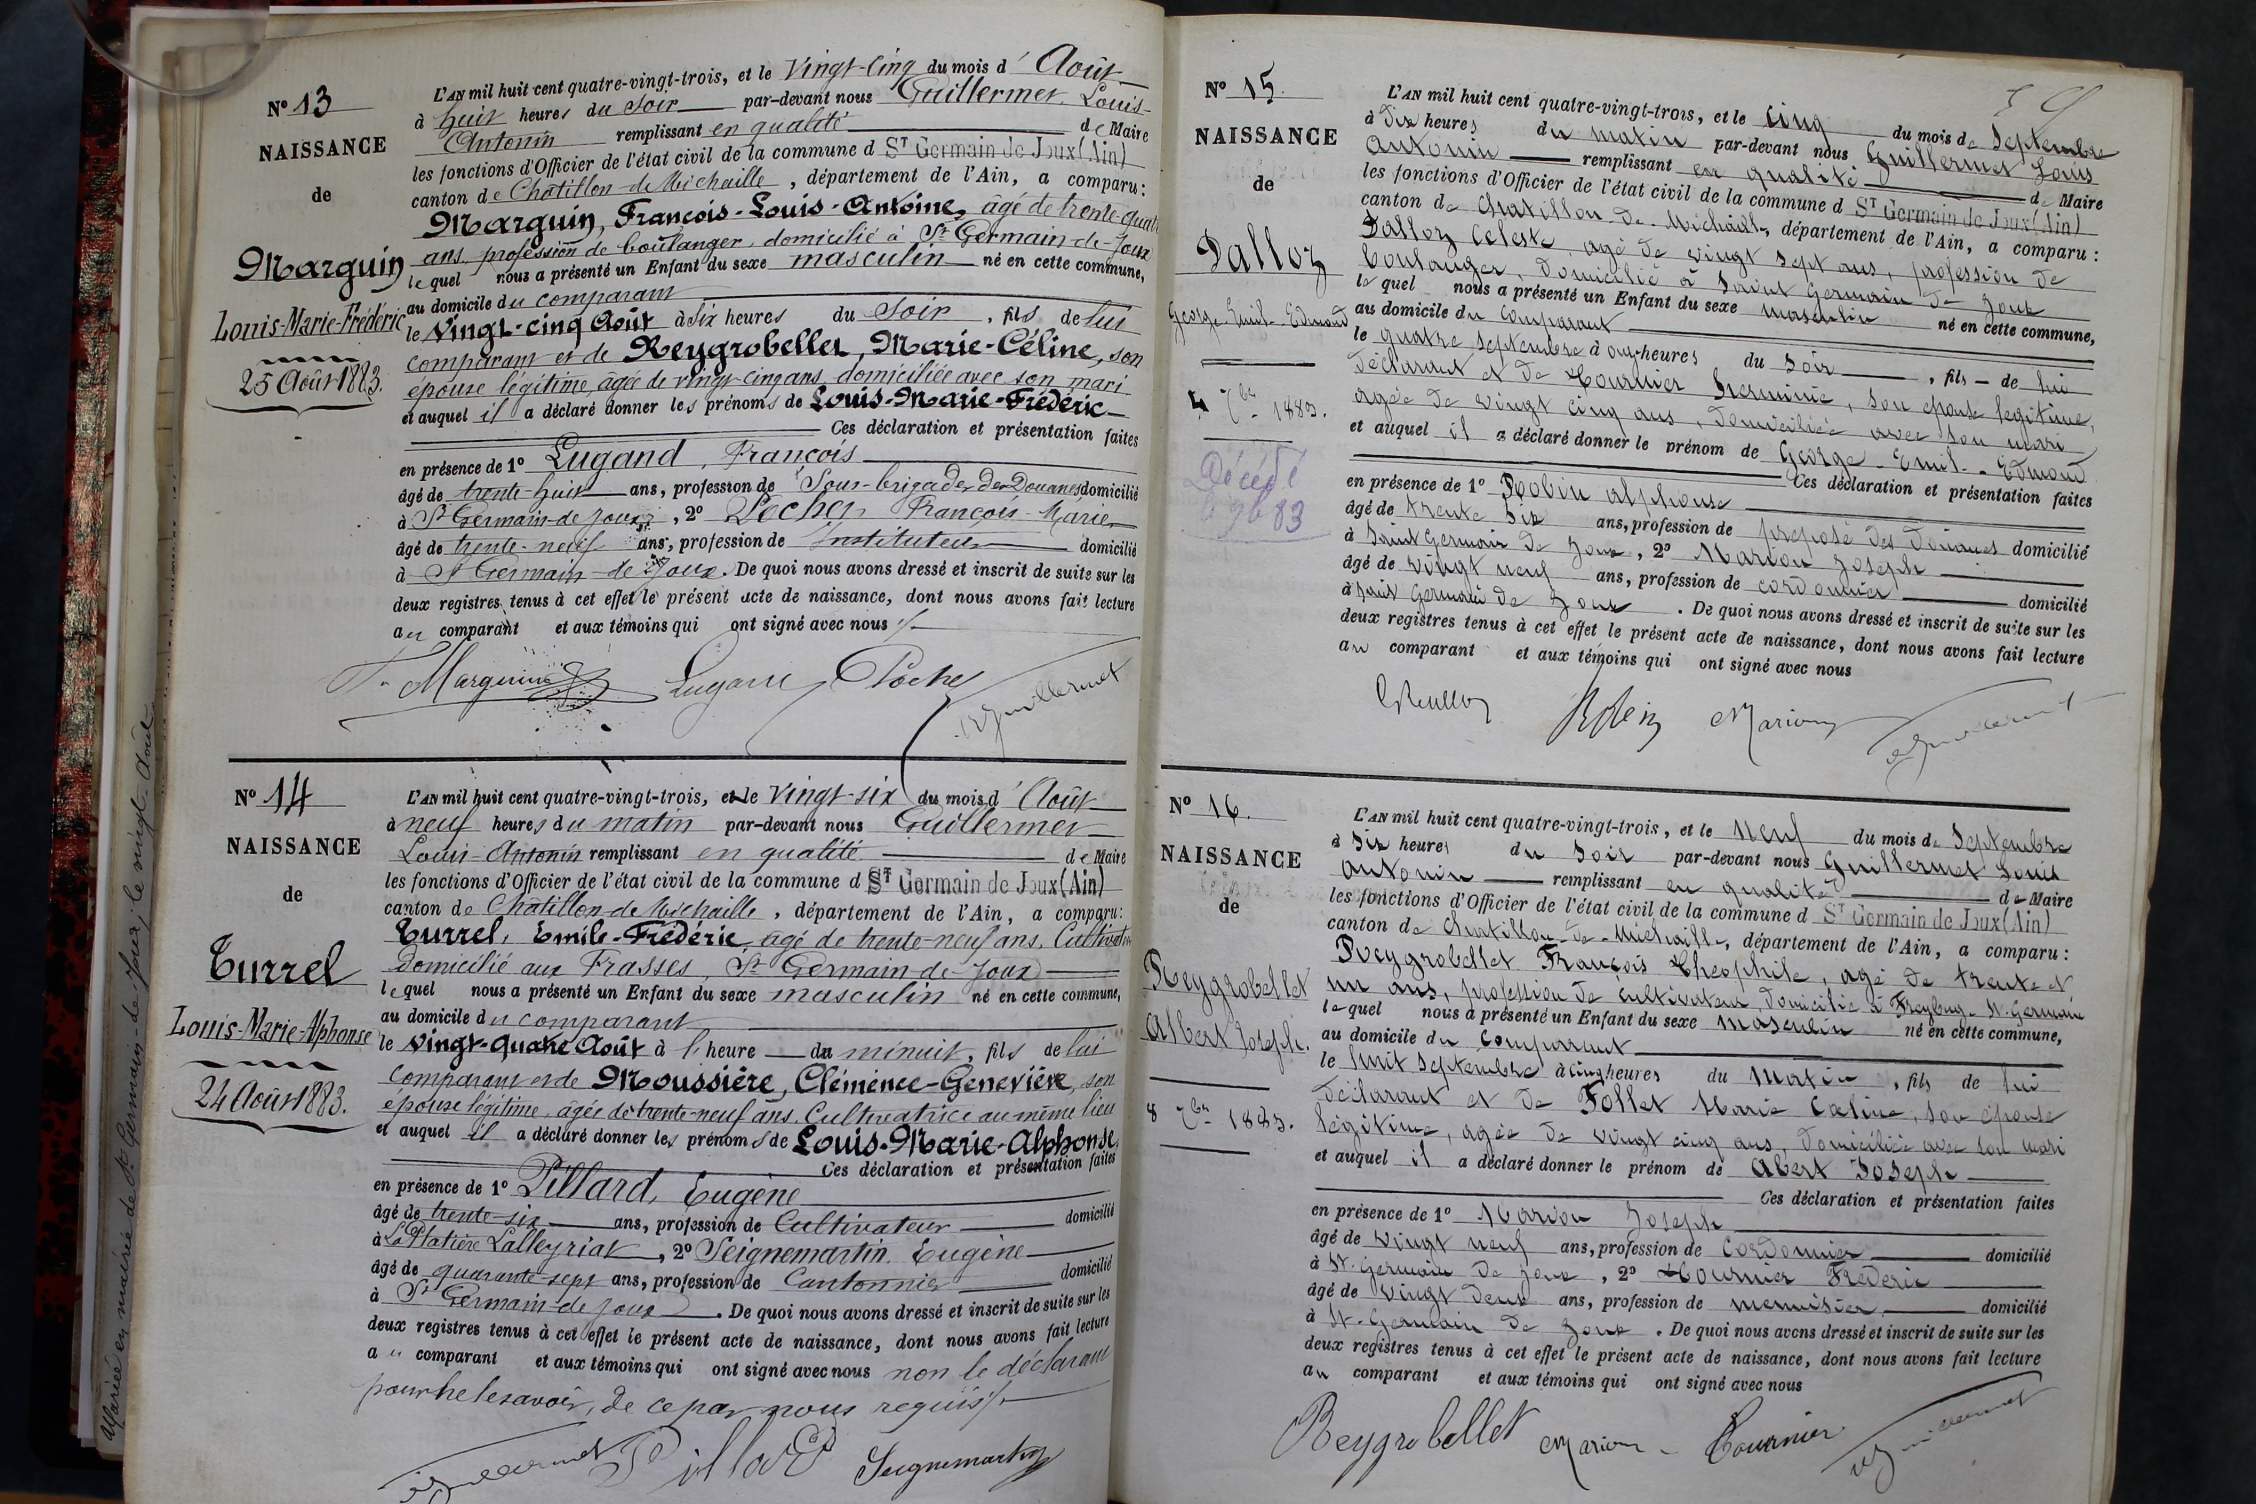 N° 13
NAISSANCE
de
Marguin
Louis-Marie-Frédéric
25 Août 1883.
L'AN mil huit cent quatre-vingt-trois, et le Vingt-Cinq du mois d' Août
à huit heures du Soir par-devant nous Guillermet Louis-
Antonin remplissant en qualité de Maire
les fonctions d'Officier de l'état civil de la commune d ST Germain de Joux (Ain)
canton de Châtillon-de-Michaille, département de l'Ain, a comparu:
Marguin, François-Louis-Antoine, âgé de trente-quatre
ans, profession de boulanger, domicilié à St Germain-de-Joux
lequel nous a présenté un Enfant du sexe masculin né en cette commune,
au domicile du comparant
le Vingt-cinq Août à six heures du Soir, fils de lui
comparant et de Reygrobellet, Marie-Céline, son
épouse légitime, âgée de vingt-cinq ans, domiciliée avec son mari
et auquel il a déclaré donner les prénoms de Louis-Marie-Frédéric
Ces déclaration et présentation faites
en présence de 1° Lugand, François
âgé de trente-huit ans, profession de Sous-brigadier des Douanes domicilié
à St Germain-de-Joux, 2° Pochet François-Marie
âgé de trente-neuf ans, profession de Instituteur domicilié
à St Germain-de-Joux. De quoi nous avons dressé et inscrit de suite sur les
deux registres tenus à cet effet le présent acte de naissance, dont nous avons fait lecture
au comparant et aux témoins qui ont signé avec nous
F. Marguin Lugand Pochet Guillermet
N° 14
NAISSANCE
de
Turrel
Louis-Marie-Alphonse
24 Août 1883.
L'AN mil huit cent quatre-vingt-trois, et le Vingt-six du mois d' Août
à neuf heures du matin par-devant nous Guillermet
Louis-Antonin remplissant en qualité de Maire
les fonctions d'Officier de l'état civil de la commune d ST Germain de Joux (Ain)
canton de Châtillon-de-Michaille, département de l'Ain, a comparu:
Turrel, Emile-Frédéric, âgé de trente-neuf ans, Cultivateur
Domicilié aux Frasses, St Germain-de-Joux
lequel nous a présenté un Enfant du sexe masculin né en cette commune,
au domicile du comparant
le Vingt-quatre Août à l'heure de minuit, fils de lui
comparant et de Moussière, Clémence-Geneviève, son
épouse légitime, âgée de trente-neuf ans, Cultivatrice au même lieu
et auquel il a déclaré donner les prénoms de Louis-Marie-Alphonse
Ces déclaration et présentation faites
en présence de 1° Pillard, Eugène
âgé de trente-six ans, profession de Cultivateur domicilié
à La Platière Lalleyriat, 2° Seignemartin Eugène
âgé de quarante-sept ans, profession de Cantonnier domicilié
à St Germain-de-Joux. De quoi nous avons dressé et inscrit de suite sur les
deux registres tenus à cet effet le présent acte de naissance, dont nous avons fait lecture
au comparant et aux témoins qui ont signé avec nous non le déclarant
pour ne le savoir, de ce par nous requis
Guillermet Pillard Seignemartin
Mariée en mairie de St Germain-de-Joux, le vingt Août
N° 15.
NAISSANCE
de
Dalloz
George-Emil-Edmond
4 7bre 1883.
Décédé
L'AN mil huit cent quatre-vingt-trois, et le cinq du mois de Septembre
à Dix heures du matin par-devant nous Guillermet Louis
Antonin remplissant en qualité de Maire
les fonctions d'Officier de l'état civil de la commune d ST Germain de Joux (Ain)
canton de Chatillon de Michaille, département de l'Ain, a comparu:
Dalloz Celeste agé de vingt sept ans, profession de
boulanger, domicilié à Saint Germain de Joux
lequel nous a présenté un Enfant du sexe masculin né en cette commune,
au domicile du comparant
le quatre septembre à onze heures du Soir, fils de lui
déclarant et de Tournier Herminie, son épouse legitime,
agée de vingt cinq ans, domiciliée avec son mari
et auquel il a déclaré donner le prénom de George-Emil-Edmond
Ces déclaration et présentation faites
en présence de 1° Robin alphonse
âgé de trente six ans, profession de préposé des Douanes domicilié
à Saint Germain de Joux, 2° Marion Joseph
âgé de vingt neuf ans, profession de cordonnier domicilié
à Saint Germain de Joux. De quoi nous avons dressé et inscrit de suite sur les
deux registres tenus à cet effet le présent acte de naissance, dont nous avons fait lecture
au comparant et aux témoins qui ont signé avec nous
Robin Marion Guillermet
N° 16.
NAISSANCE
de
Reygrobellet
Albert Joseph.
8 7bre 1883.
L'AN mil huit cent quatre-vingt-trois, et le Neuf du mois de Septembre
à Six heures du Soir par-devant nous Guillermet Louis
Antonin remplissant en qualité de Maire
les fonctions d'Officier de l'état civil de la commune d ST Germain de Joux (Ain)
canton de Chatillon-de-Michaille, département de l'Ain, a comparu:
Reygrobellet François Théophile, agé de trente et
un ans, profession de cultivateur, domicilié à St. Germain
lequel nous a présenté un Enfant du sexe Masculin né en cette commune,
au domicile du comparant
le huit septembre à cinq heures du Matin, fils de lui
déclarant et de Follet Marie Celine, son épouse
légitime, agée de vingt cinq ans, domiciliée avec son mari
et auquel il a déclaré donner le prénom de Abert Joseph
Ces déclaration et présentation faites
en présence de 1° Marion Joseph
âgé de vingt neuf ans, profession de Cordonnier domicilié
à St. Germain de Joux, 2° Tournier Frederic
âgé de vingt deux ans, profession de menuisier domicilié
à St. Germain de Joux. De quoi nous avons dressé et inscrit de suite sur les
deux registres tenus à cet effet le présent acte de naissance, dont nous avons fait lecture
au comparant et aux témoins qui ont signé avec nous
Reygrobellet Marion Tournier Guillermet